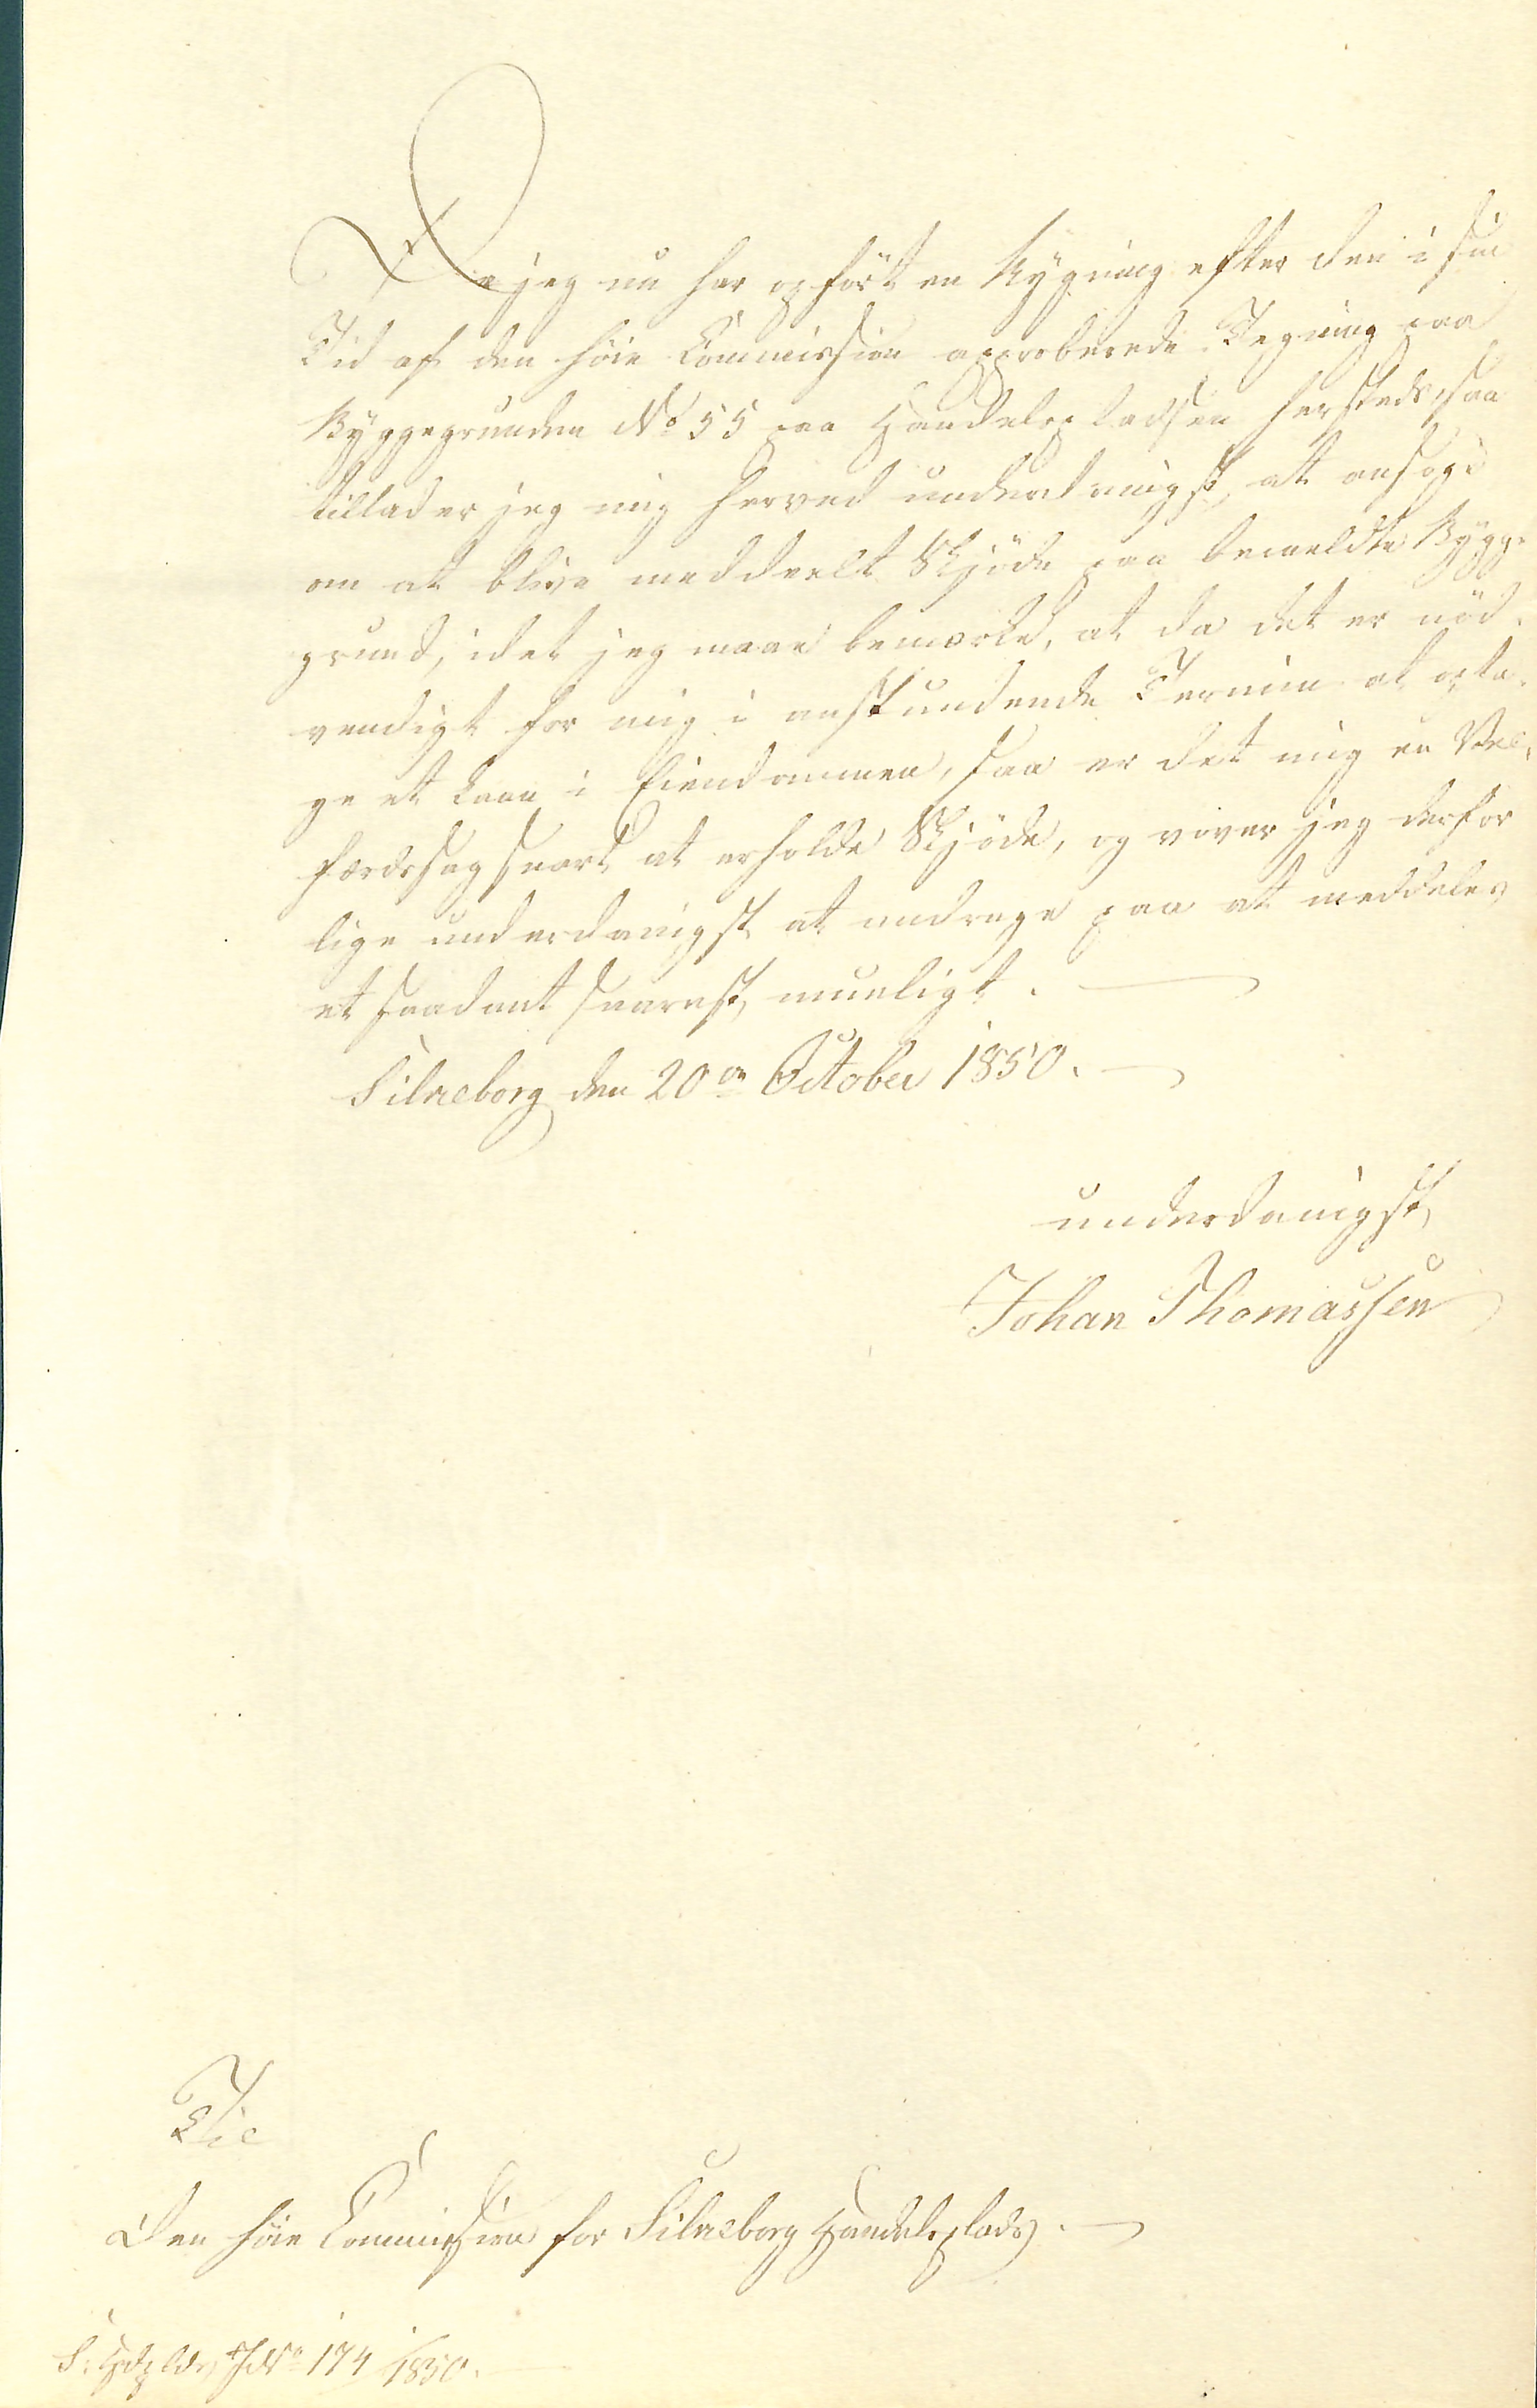 Da jeg nu har opført en Bygning efter den i sin
Tid af den høie Commission approberede Tegning paa
Byggegrunden No 55 paa Handelspladsen hersteds, saa
tillader jeg mig herved underdanigst, at ansøge
om at blive meddeelt Skjöde paa bemeldte Bygge
grund, idet jeg maae bemærke, at da det er nöd-
vendigt for mig i anstundende Termin at opta-
ge et Laan i Eiendommen, saa er det mig en Vel-
færdssag snart at erholde Skjöde, og vover jeg derfor
lige underdanigst at andrage paa at meddeles
et saadant snarest mueligt.
Silkeborg den 20de October 1850.
underdanigst
Johan Thomassen
Til
Den høie Commission for Silkeborg Handelsplads.
S. Hdplds J No 174/1850.